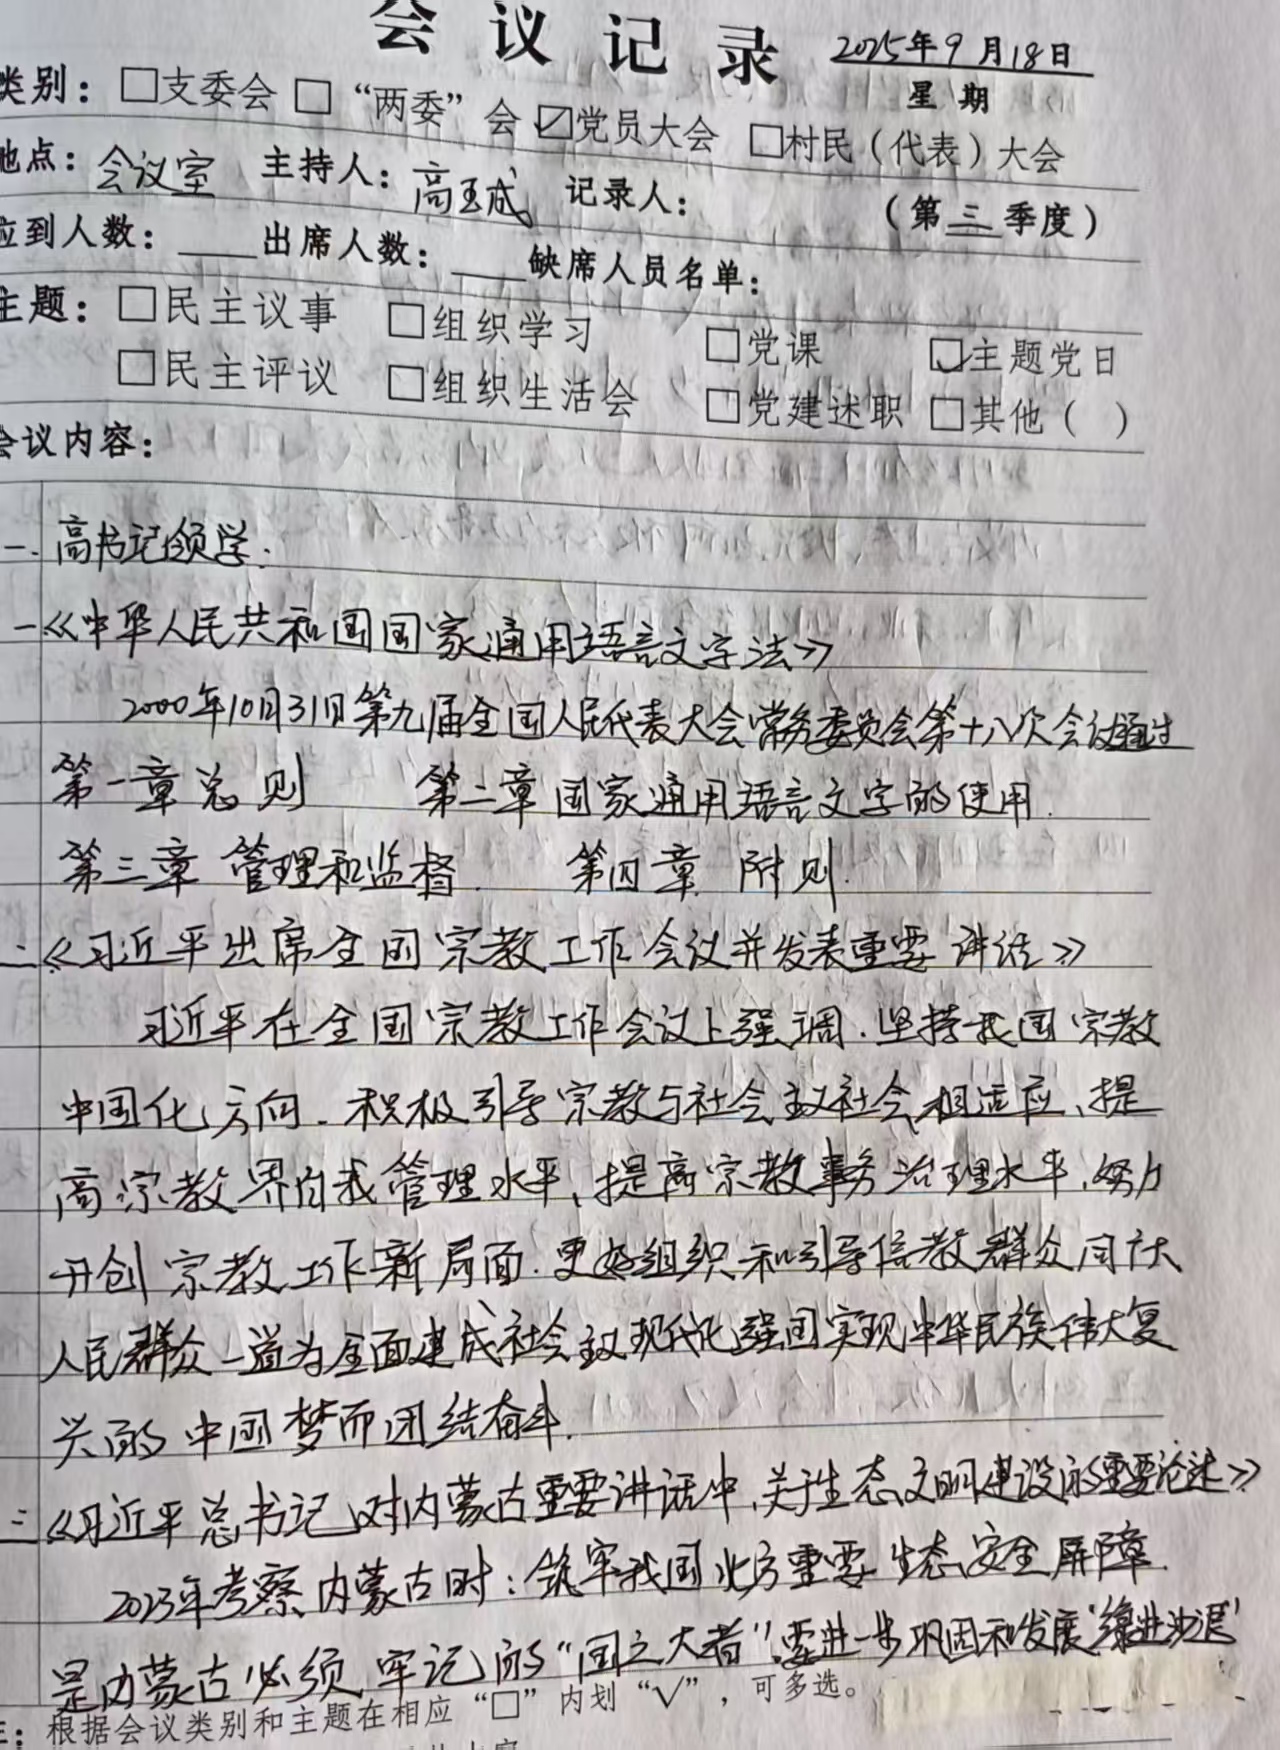 会议记录 2025年9月18日
星期
类别：□支委会 □“两委”会 ☑党员大会 □村民（代表）大会
地点：会议室 主持人：高玉成 记录人： （第三季度）
应到人数： 出席人数： 缺席人员名单：
主题：□民主议事 □组织学习 □党课 ☑主题党日
□民主评议 □组织生活会 □党建述职 □其他（ ）
会议内容：
一. 高书记领学.
一《中华人民共和国国家通用语言文字法》
2000年10月31日第九届全国人民代表大会常务委员会第十八次会议通过
第一章总则 第二章国家通用语言文字的使用.
第三章 管理和监督. 第四章 附则.
二《习近平出席全国宗教工作会议并发表重要讲话》
习近平在全国宗教工作会议上强调.坚持我国宗教
中国化方向.积极引导宗教与社会主义社会相适应、提
高宗教界自我管理水平、提高宗教事务治理水平、努力
开创宗教工作新局面.更好组织和引导信教群众同广大
人民群众一道为全面建成社会主义现代化强国实现中华民族伟大复
兴的中国梦而团结奋斗.
三《习近平总书记对内蒙古重要讲话中、关于生态文明建设的重要论述》
2023年考察内蒙古时：筑牢我国北方重要生态安全屏障.
是内蒙古必须牢记的“国之大者”.要进一步巩固和发展“绿进沙退”
注：根据会议类别和主题在相应“□”内划“√”，可多选。